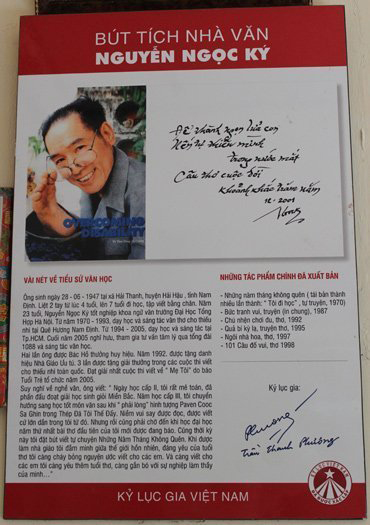 BÚT TÍCH NHÀ VĂN
NGUYỄN NGỌC KÝ
Để thành ngọn lửa con
Nến tự thiêu mình
trong nước mắt
Câu thơ cuộc đời
khoảnh khắc trăm năm
12.2001
OVERCOMING
DISABILITY
VÀI NÉT VỀ TIỂU SỬ VĂN HỌC
Ông sinh ngày 28 - 06 - 1947 tại xã Hải Thanh, huyện Hải Hậu, tỉnh Nam
Định. Liệt 2 tay từ lúc 4 tuổi, lên 7 tuổi đi học, tập viết bằng chân. Năm
23 tuổi, Nguyễn Ngọc Ký tốt nghiệp khoa ngữ văn trường Đại Học Tổng
Hợp Hà Nội. Từ năm 1970 - 1993, dạy học và sáng tác văn thơ cho thiếu
nhi tại Quê Hương Nam Định. Từ 1994 - 2005, dạy học và sáng tác tại
Tp.HCM. Cuối năm 2005 nghỉ hưu, tham gia tư vấn tâm lý qua tổng đài
1088 và sáng tác văn học.
Hai lần ông được Bác Hồ thưởng huy hiệu. Năm 1992, được tặng danh
hiệu Nhà Giáo Ưu tú. 3 lần được tặng giải thưởng trong các cuộc thi viết
cho thiếu nhi toàn quốc. Đạt giải nhất cuộc thi viết về " Mẹ Tôi" do báo
Tuổi Trẻ tổ chức năm 2005.
Suy nghĩ về nghề văn, ông viết: " Ngày học cấp II, tôi rất mê toán, đã
phấn đấu đoạt giải học sinh giỏi Miền Bắc. Năm học cấp III, tôi chuyển
hướng sang học tốt môn văn sau khi " phải lòng" hình tượng Paven Cooc
Sa Ghin trong Thép Đã Tôi Thế Đấy. Niềm vui say được đọc, được viết
cứ lớn dần trong tôi từ đó. Nhưng rồi cũng phải chờ đến khi đại học
năm thứ nhất bài thơ đầu tiên của tôi mới được đăng báo. Cũng thời kỳ
này tôi đặt bút viết tự chuyện Những Năm Tháng Không Quên. Khi được
làm nhà giáo tôi đắm mình giữa thế giới hồn nhiên, đáng yêu của tuổi
thơ tôi càng cháy bỏng nguyện ước viết cho các em. Và càng viết cho
các em tôi càng yêu thêm tuổi thơ, càng gắn bó với sự nghiệp làm thầy
của mình..."
NHỮNG TÁC PHẨM CHÍNH ĐÃ XUẤT BẢN
- Những năm tháng không quên ( tái bản thành
nhiều lần thành: " Tôi đi học" , tự truyện, 1970)
- Bức tranh vui, truyện (in chung), 1987)
- Chú nhện chơi đu, thơ, 1992
- Quả bí kỳ lạ, truyện thơ, 1995
- Ngôi nhà hoa, thơ, 1997
- 101 Câu đố vui, thơ 1998
Kỷ lục gia:
Phương
Trần Thanh Phương
KỶ LỤC GIA VIỆT NAM